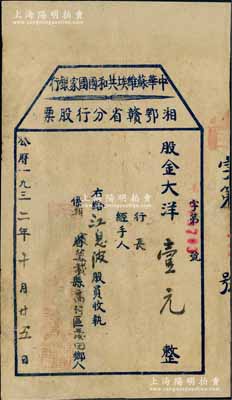 上海陽明拍賣
中華蘇維埃共和國國家銀行
湘鄂贛省分行股票
字第703號
股金大洋壹元整
行長
經手人
右給江息波股員收執
係萬載縣高村區
鄉人
公曆一九三二年十月廿五日
字第
號
上海陽明拍賣